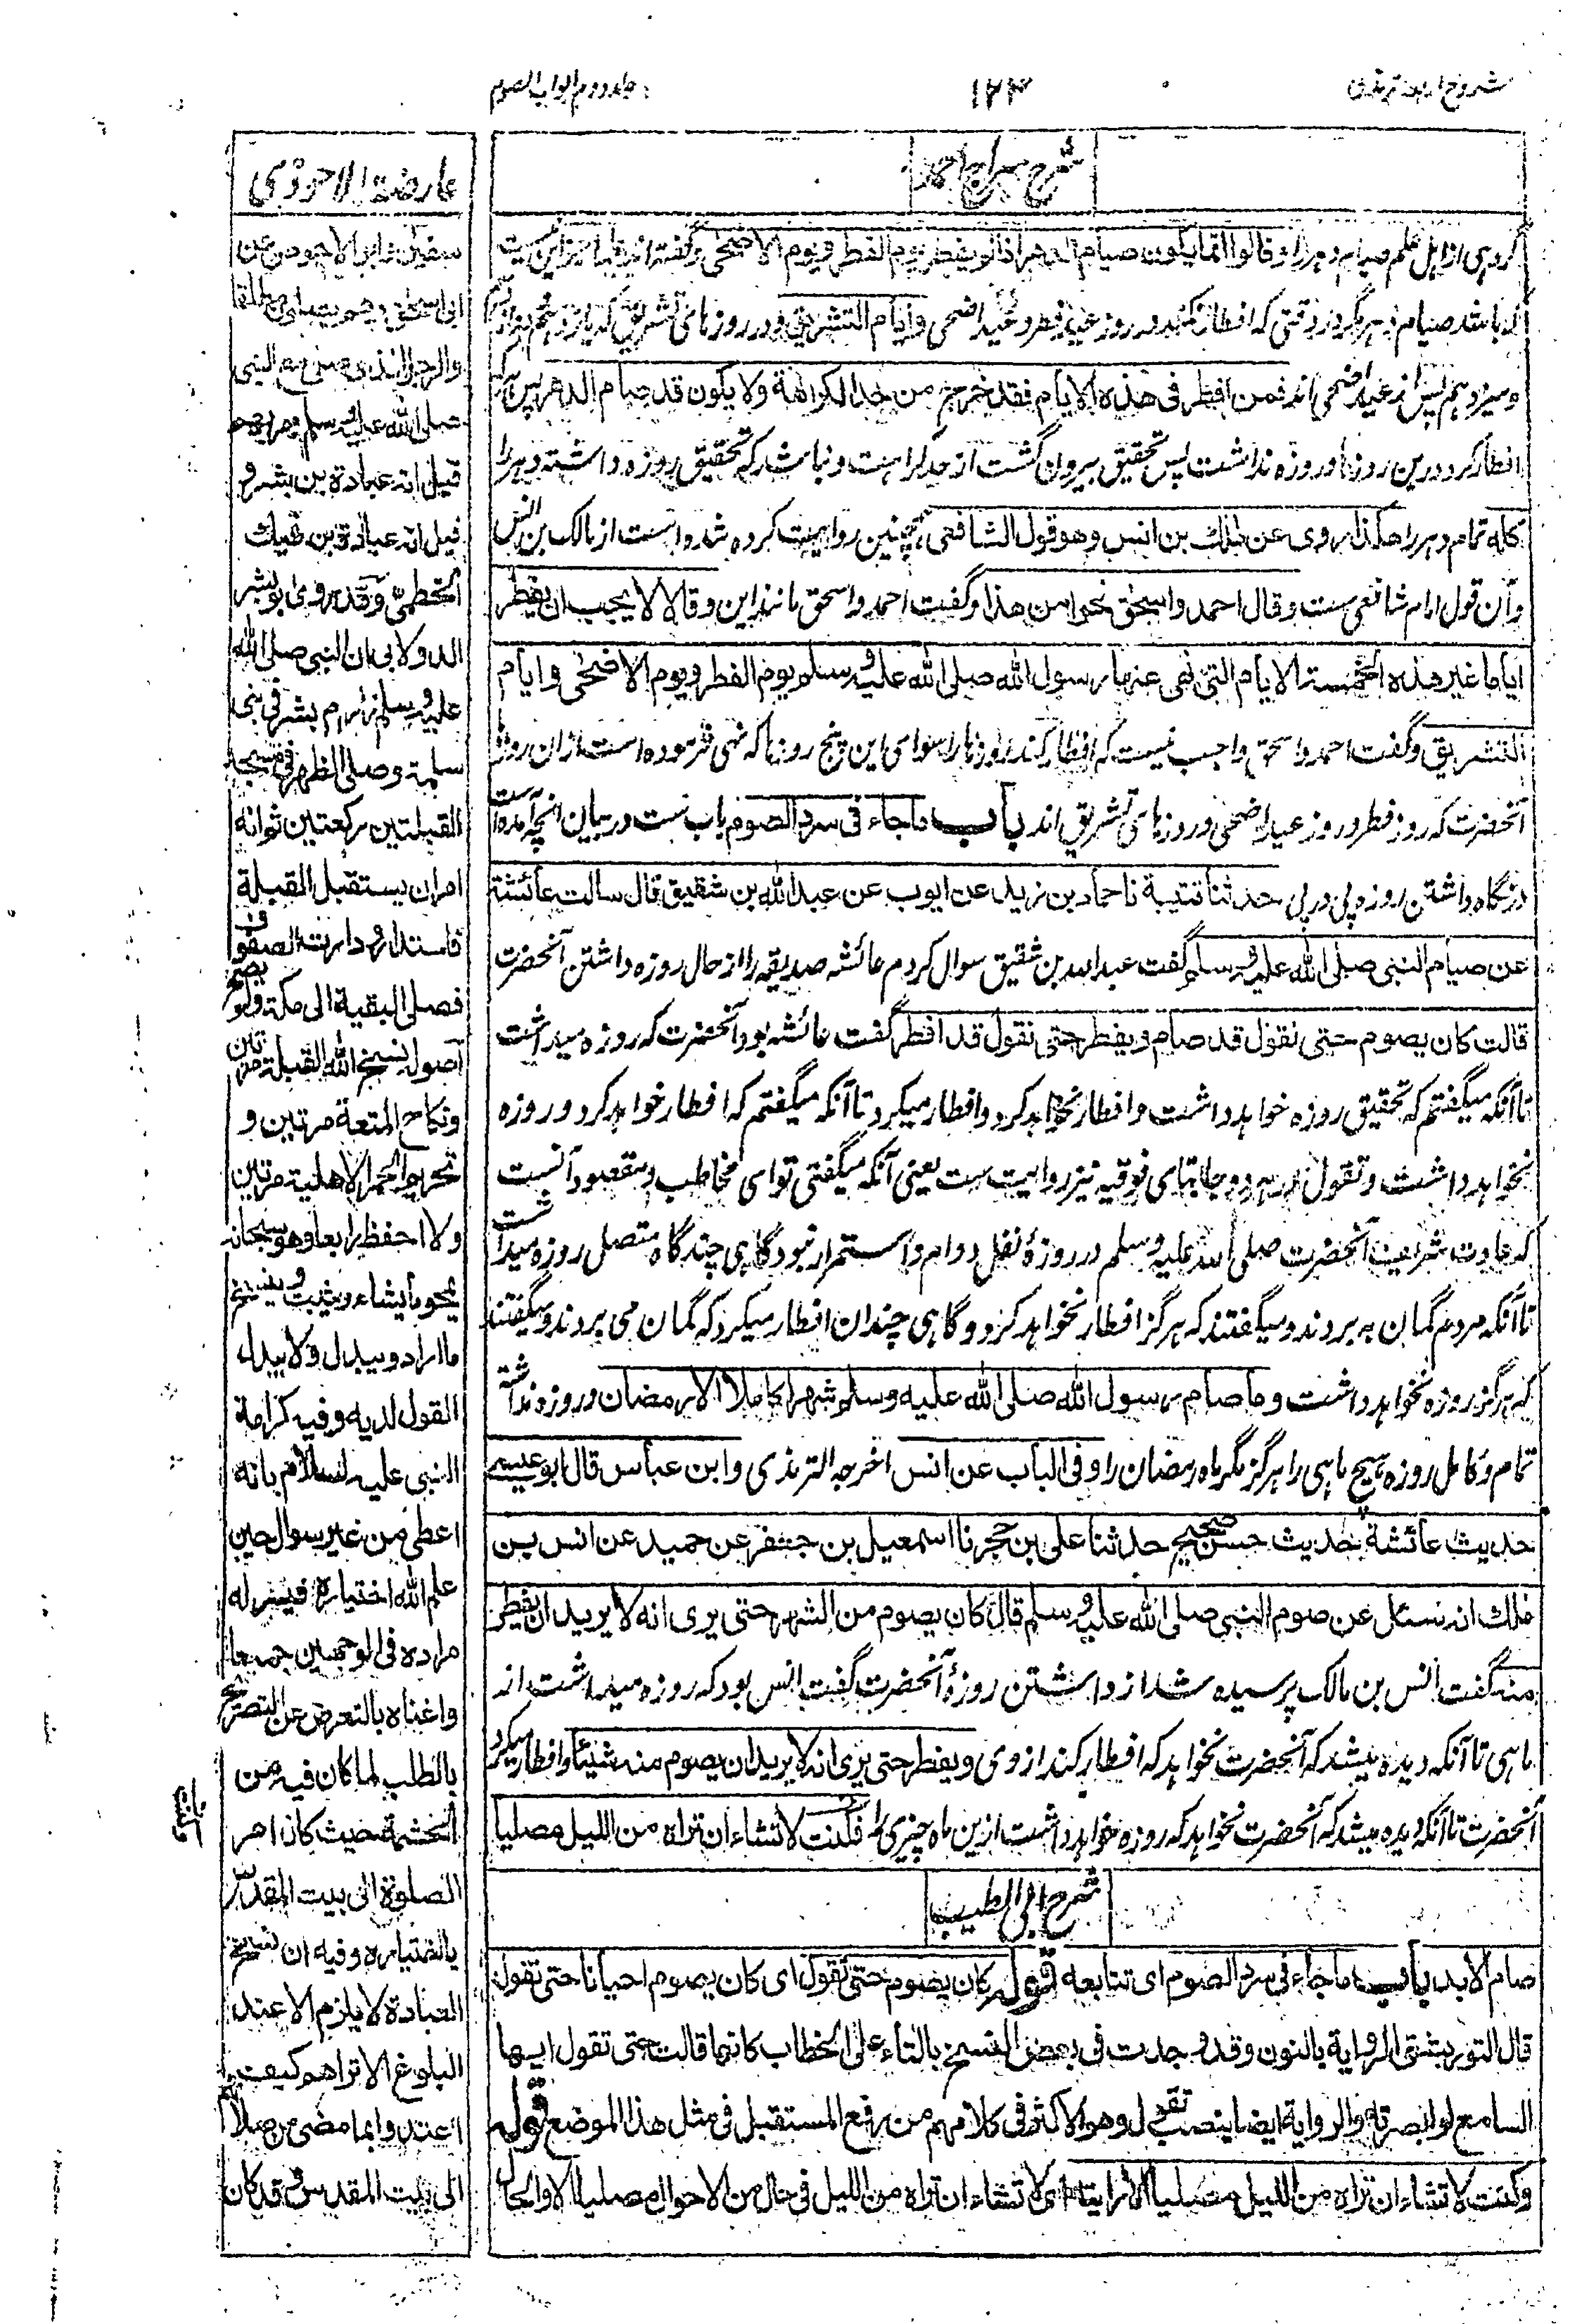 شروح اربعه ترمذی
۱۲۳
جلد دوم ابواب الصوم
شرح سراج احمد
گروهی از اهل علم صیام دهر را و قالوا انما یکون صیام الدهر اذا لم یفطر یوم الفطر و یوم الاضحی و گفته اند
که باشد صیام دهر مگر در وقتی که افطار نکند در روز عید فطر و عید اضحی و ایام التشریق و در روزهای تشریق که یازدهم
و سیزدهم پس از عید اضحی اند فمن افطر فی هذه الایام فقد خرج من حد الکراهة ولا یکون قد صام الدهر پس هرکه
افطار کرد درین روزها و روزه نداشت پس تحقیق بیرون گشت از حد کراهت و نباشد که تحقیق روزه داشته دهر را
کله تمام دهر را هکذا روی عن مالک بن انس وهو قول الشافعی همچنین روایت کرده شده است از مالک بن انس
و آن قول امام شافعی ست وقال احمد واسحق نحوا من هذا و گفت احمد و اسحق مانند این وقالا لا یجب ان یفطر
ایاما غیر هذه الخمسة الایام التی نهی عنها رسول الله صلی الله علیه وسلم یوم الفطر ویوم الاضحی وایام
التشریق و گفت احمد و اسحق واجب نیست که افطار کند روزها را سوای این پنج روزها که نهی فرموده است ازان روزها
آنحضرت که روز فطر و روز عید اضحی و روزهای تشریق اند باب ماجاء فی سرد الصوم باب ست در بیان انچه آمده است
در نگاه داشتن روزه پی در پی حدثنا قتیبة نا حماد بن زید عن ایوب عن عبد الله بن شقیق قال سالت عائشة
عن صیام النبی صلی الله علیه وسلم گفت عبد الله بن شقیق سوال کردم عائشه صدیقه را از حال روزه داشتن آنحضرت
قالت کان یصوم حتی نقول قد صام ویفطر حتی نقول قد افطر گفت عائشه بود آنحضرت که روزه میداشت
تا آنکه میگفتم که تحقیق روزه خواهد داشت و افطار نخواهد کرد و افطار میکرد تا آنکه میگفتم که افطار خواهد کرد و روزه
نخواهد داشت و تقول در هر دو جا بتای فوقیه نیز روایت ست یعنی آنکه میگفتی تو ای مخاطب و مقصود آنست
که عادت شریف آنحضرت صلی الله علیه وسلم در روزهٔ نفل دوام و استمرار نبود گاهی چندگاه متصل روزه میداشت
تا آنکه مردم گمان می بردند و میگفتند که هرگز افطار نخواهد کرد و گاهی چندان افطار میکرد که گمان می بردند و میگفتند
که هرگز روزه نخواهد داشت وما صام رسول الله صلی الله علیه وسلم شهرا کاملا الا رمضان و روزه نداشته
تمام و کامل روزه هیچ ماهی را هرگز مگر ماه رمضان را وفی الباب عن انس اخرجه الترمذی وابن عباس قال ابو عیسی
حدیث عائشة حدیث حسن صحیح حدثنا علی بن حجر نا اسمعیل بن جعفر عن حمید عن انس بن
مالک انه سئل عن صوم النبی صلی الله علیه وسلم قال کان یصوم من الشهر حتی یری انه لا یرید ان یفطر
منه گفت انس بن مالک پرسیده شد از داشتن روزهٔ آنحضرت گفت انس بود که روزه میداشت از
ماهی تا آنکه دیده میشد که آنحضرت نخواهد که افطار کند از وی ویفطر حتی یری انه لا یرید ان یصوم منه شیئا و افطار میکرد
آنحضرت تا آنکه دیده میشد که آنحضرت نخواهد که روزه خواهد داشت ازین ماه چیزی را فکنت لا تشاء ان تراه من اللیل مصلیا
شرح ابی الطیب
صام الابد باب ماجاء فی سرد الصوم ای تتابعه قوله کان یصوم حتی نقول ای کان یصوم احیانا حتی نقول
قال التوربشتی الروایة بالنون وقد وجدت فی بعض النسخ بالتاء علی الخطاب کانها قالت حتی تقول ایها
السامع لو ابصرته والروایة ایضا بنصب تقول وهو الاکثر فی کلامهم من رفع المستقبل فی مثل هذا الموضع قوله
وکنت لا تشاء ان تراه من اللیل مصلیا الا رایته ای لا تشاء ان تراه من اللیل فی حال من الاحوال مصلیا الا والحال
عارضة الاحوذی
سفین ثنا ابو الاحوص عن
ابی اسحق
والرجل الذی صلی مع النبی
صلی الله علیه وسلم
قیل انه عبادة بن بشر و
قیل انه عباد بن نهیک
الخطمی وقد روی ابو بشر
الدولابی ان النبی صلی الله
علیه وسلم زار ام بشر فی بنی
سلمة وصلی الظهر فی مسجد
القبلتین رکعتین ثم انه
امر ان یستقبل القبلة
فاستدار ودارت الصفوف
فصلی البقیة الی مکة ولم یصح
اصول نسخ الله القبلة مرتین
ونکاح المتعة مرتین و
تحریم الحمر الاهلیة مرتین
ولا احفظ رابعا وهو سبحانه
یمحو ما یشاء ویثبت وینسخ
ما اراد ویبدل ولا یبدل
القول لدیه وفیه کرامة
النبی علیه السلام بانه
اعطی من غیر سوال حین
علم الله اختیاره فیسر له
مراده فی الوجهین جمیعا
واغناه بالتعرض عن التصریح
بالطلب لما کان فیه من
الحشمة حیث کان امر
الصلوة الی بیت المقدس
باختیاره وفیه ان نسخ
العبادة لا یلزم الا عند
البلوغ الا تراهم کیف
اعتدوا بما مضی من صلاة
الی بیت المقدس وقد کان